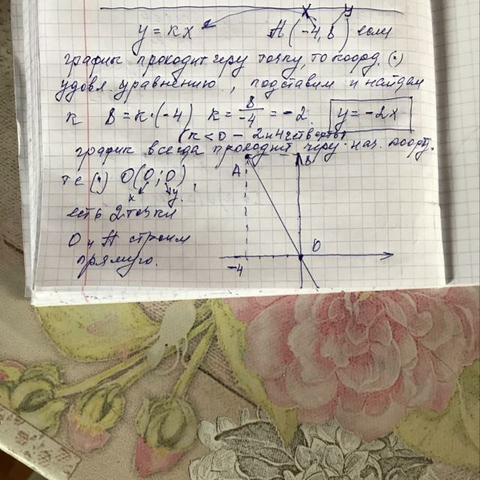 x y
y = kx A(-4, 8) если
график проходит через точку, то коорд. (•)
удовл уравнению, подставим и найдем
к 8 = к·(-4) k = 8/-4 = -2. y = -2x
(к < 0 – 2 и 4 четверти
график всегда проходит через нач. коорд.
те (•) O(0; 0),
x y
есть 2 точки
O и A строим
прямую.
A 8
-4 0